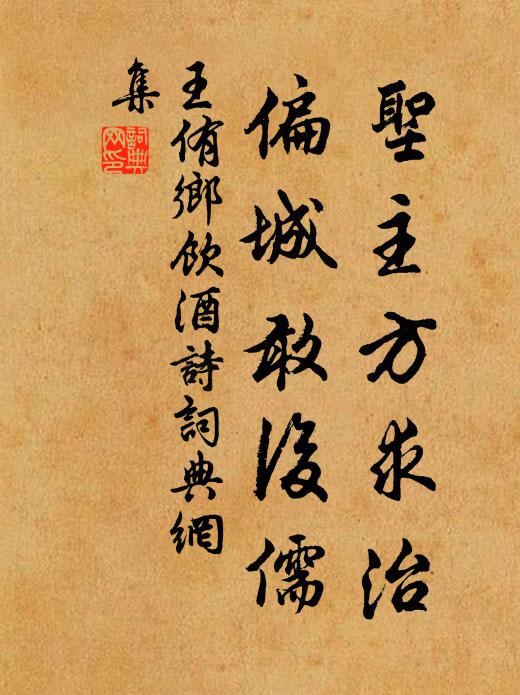 聖主方求治
偏城敢後儒
王侑鄉飲酒詩詞典網
集
詞典
网印